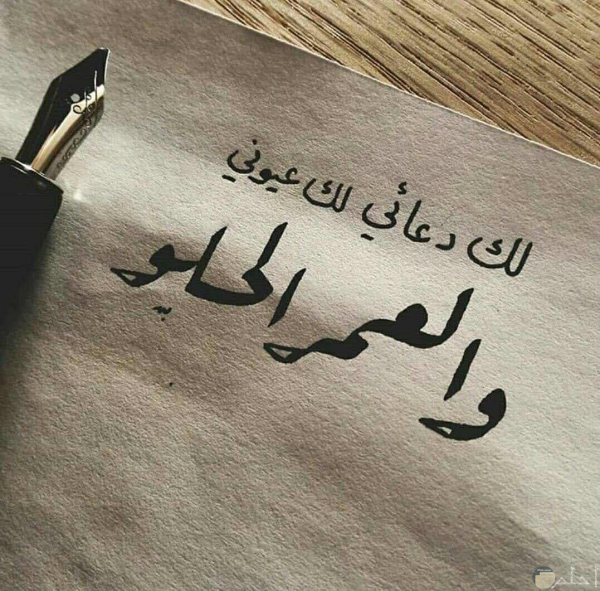 لك دعأئي لك عيوني
والعمر الحليو